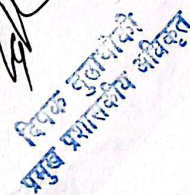 दिपक पुडासैनी
प्रमुख प्रशासकीय अधिकृत